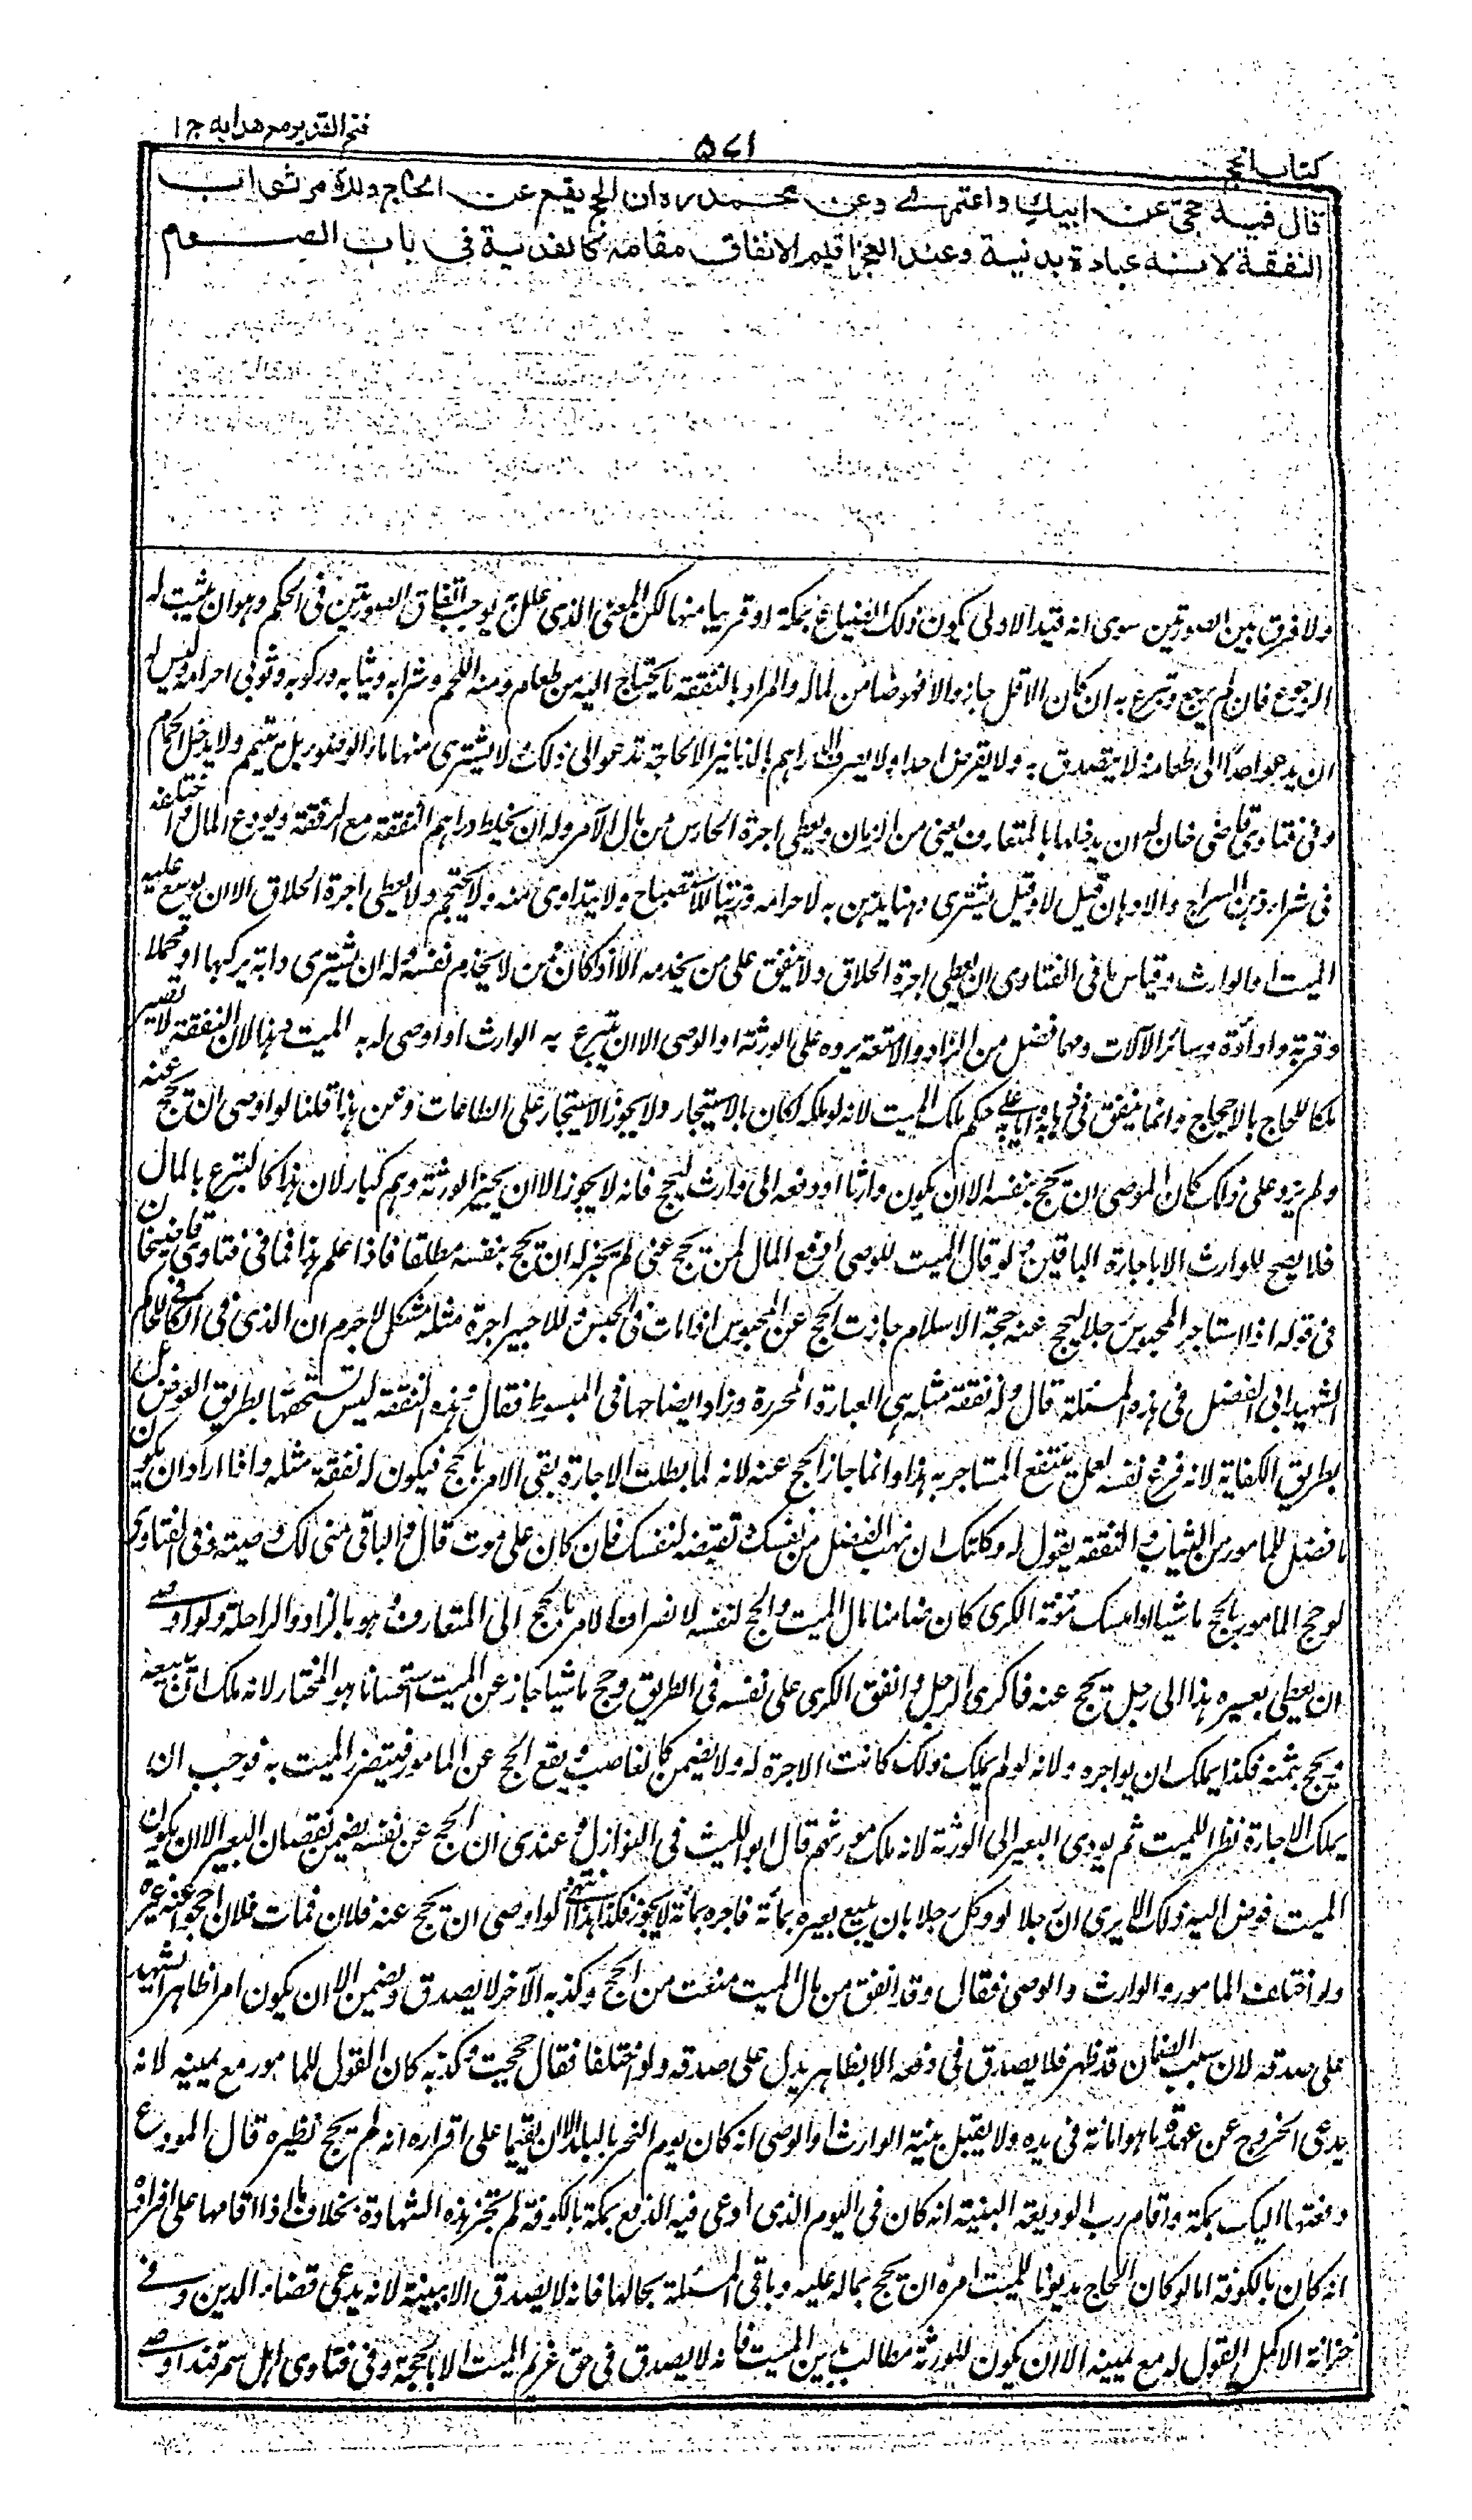 كتاب الحج
۵۷۱
فتح القدير مع هدايه ج ا
قال فيه حجى عن ابيك واعتمرى وعن محمد ره ان الحج يقع عن الحاج وللآمر ثواب
النفقة لانه عبادة بدنية وعند العجز اقيم الانفاق مقامه كالفدية فى باب الصوم
ولا فرق بين الصورتين سوى انه قيد الاولى بكون ذلك الضياع بمكة او قريبا منها لكن المعنى الذى علل به يوجب اتفاق الصورتين فى الحكم وهو ان يثبت له
الرجوع فان لم يرجع وتبرع به ان كان الاقل جاز والا فهو ضامن لماله والمراد بالنفقة ما يحتاج اليه من طعام ومنه اللحم وشرابه وثيابه وركوبه وثوبى احرامه وليس له
ان يدعو احدا الى طعامه ولا يتصدق به ولا يقرض احدا ولا يصرف الدراهم بالدنانير الا لحاجة تدعو الى ذلك ولا يشترى منها ماء الوضوء بل يتيمم ولا يدخل الحمام
وفى فتاوى قاضى خان له ان يدخلها بالمتعارف يعنى من الزمان ويعطى اجرة الحارس من مال الآمر وله ان يخلط دراهم النفقة مع الرفقة ويودع المال واختلف
فى شراء دهن السراج والادهان قيل لا وقيل يشترى دهنا يدهن به لاحرامه وزيتا للاستصباح ولا يتداوى منه ولا يحتجم ولا يعطى اجرة الحلاق الا ان يوسع عليه
الميت او الوارث وقياس ما فى الفتاوى ان يعطى اجرة الحلاق ولا ينفق على من يخدمه الا اذا كان ممن لا يخدم نفسه وله ان يشترى دابة يركبها او محملا
وقربة واداوة وسائر الآلات ومهما فضل من الزاد والامتعة يرده على الورثة او الوصى الا ان يتبرع به الوارث او اوصى له به الميت وهذا لان النفقة لا تصير
ملكا للحاج بالاحجاج وانما ينفق فى ذهابه وايابه على حكم ملك الميت لانه لو ملكه لكان بالاستيجار ولا يجوز الاستيجار على الطاعات وعن هذا قلنا لو اوصى ان يحج عنه
ولم يزد على ذلك كان للوصى ان يحج بنفسه الا ان يكون وارثا او دفعه الى وارث ليحج فانه لا يجوز الا ان يجيز الورثة وهم كبار لان هذا كالتبرع بالمال
فلا يصح للوارث الا باجازة الباقين ولو قال الميت للوصى ادفع المال لمن يحج عنى لم يجز له ان يحج بنفسه مطلقا فاذا علم هذا فما فى فتاوى قاضيخان
فى قوله اذا استاجر المحبوس رجلا ليحج عنه حجة الاسلام جازت الحج عن المحبوس اذا مات فى الحبس وللاجير اجرة مثله مشكل لا جرم ان الذى فى الكافى للحاكم
الشهيد ابى الفضل فى هذه المسئلة قال وله نفقة مثله هى العبارة المحررة وزاد ايضاحها فى المبسوط فقال وهذه النفقة ليس تستحقها بطريق العوض بل
بطريق الكفاية لانه فرغ نفسه لعمل ينتفع المستاجر به هذا وانما جاز الحج عنه لانه لما بطلت الاجارة بقى الامر بالحج فيكون له نفقة مثله واذا اراد ان يكون
ما فضل للمامور من الثياب والنفقة يقول له وكلتك ان تهب الفضل من نفسك وتقبضه لنفسك فان كان على موت قال والباقى منى لك وصية وفى الفتاوى
لو حج المامور بالحج ماشيا وامسك مؤنة الكرى كان ضامنا مال الميت والحج لنفسه لانصراف الامر بالحج الى المتعارف وهو بالزاد والراحلة ولو اوصى
ان يعطى بعيره هذا الى رجل يحج عنه فاكرى الرجل وانفق الكرى على نفسه فى الطريق وحج ماشيا جاز عن الميت استحسانا هو المختار لانه ملك ان يبيعه
ويحج بثمنه فكذا يملك ان يواجره ولانه لو لم يملك ذلك كانت الاجرة له ولا يضمن كالغاصب ويقع الحج عن المامور فيتضرر الميت به فوجب ان
يملك الاجارة نظرا للميت ثم يودى البعير الى الورثة لانه ملك مورثهم قال ابو الليث فى النوازل وعندى ان الحج عن نفسه يضمن نقصان البعير الا ان يكون
الميت فوض اليه ذلك الا يرى ان رجلا لو وكل رجلا بان يبيع بعيره بمائة فاجره بمائة لا يجوز فكذا هذا انتهى لو اوصى ان يحج عنه فلان فمات فلان احجوا عنه غيره
ولو اختلف المامور والوارث والوصى فقال وقد انفق من مال الميت منعت من الحج وكذبه الآخر لا يصدق ويضمن الا ان يكون امرا ظاهرا يشهد
على صدقه لان سبب الضمان قد ظهر فلا يصدق فى دفعه الا بظاهر يدل على صدقه ولو اختلفا فقال حججت وكذبه كان القول للمامور مع يمينه لانه
يدعى الخروج عن عهدة ما هو امانة فى يده ولا يقبل بينة الوارث او الوصى انه كان يوم النحر بالبلد الا ان يقيما على اقراره انه لم يحج نظيره قال المودع
دفعتها اليك بمكة واقام رب الوديعة البينة انه كان فى اليوم الذى ادعى فيه الدفع بمكة بالكوفة لم تجز هذه الشهادة بخلاف ما اذا اقامها على اقراره
انه كان بالكوفة اما لو كان الحاج مديونا للميت امره ان يحج بماله عليه وباقى المسئلة بحالها فانه لا يصدق الا ببينة لانه يدعى قضاء الدين وفى
خزانة الاكمل القول له مع يمينه الا ان يكون للورثة مطالب بدين الميت فانه لا يصدق فى حق غريم الميت الا بالحجة وفى فتاوى اهل سمرقند اوصى